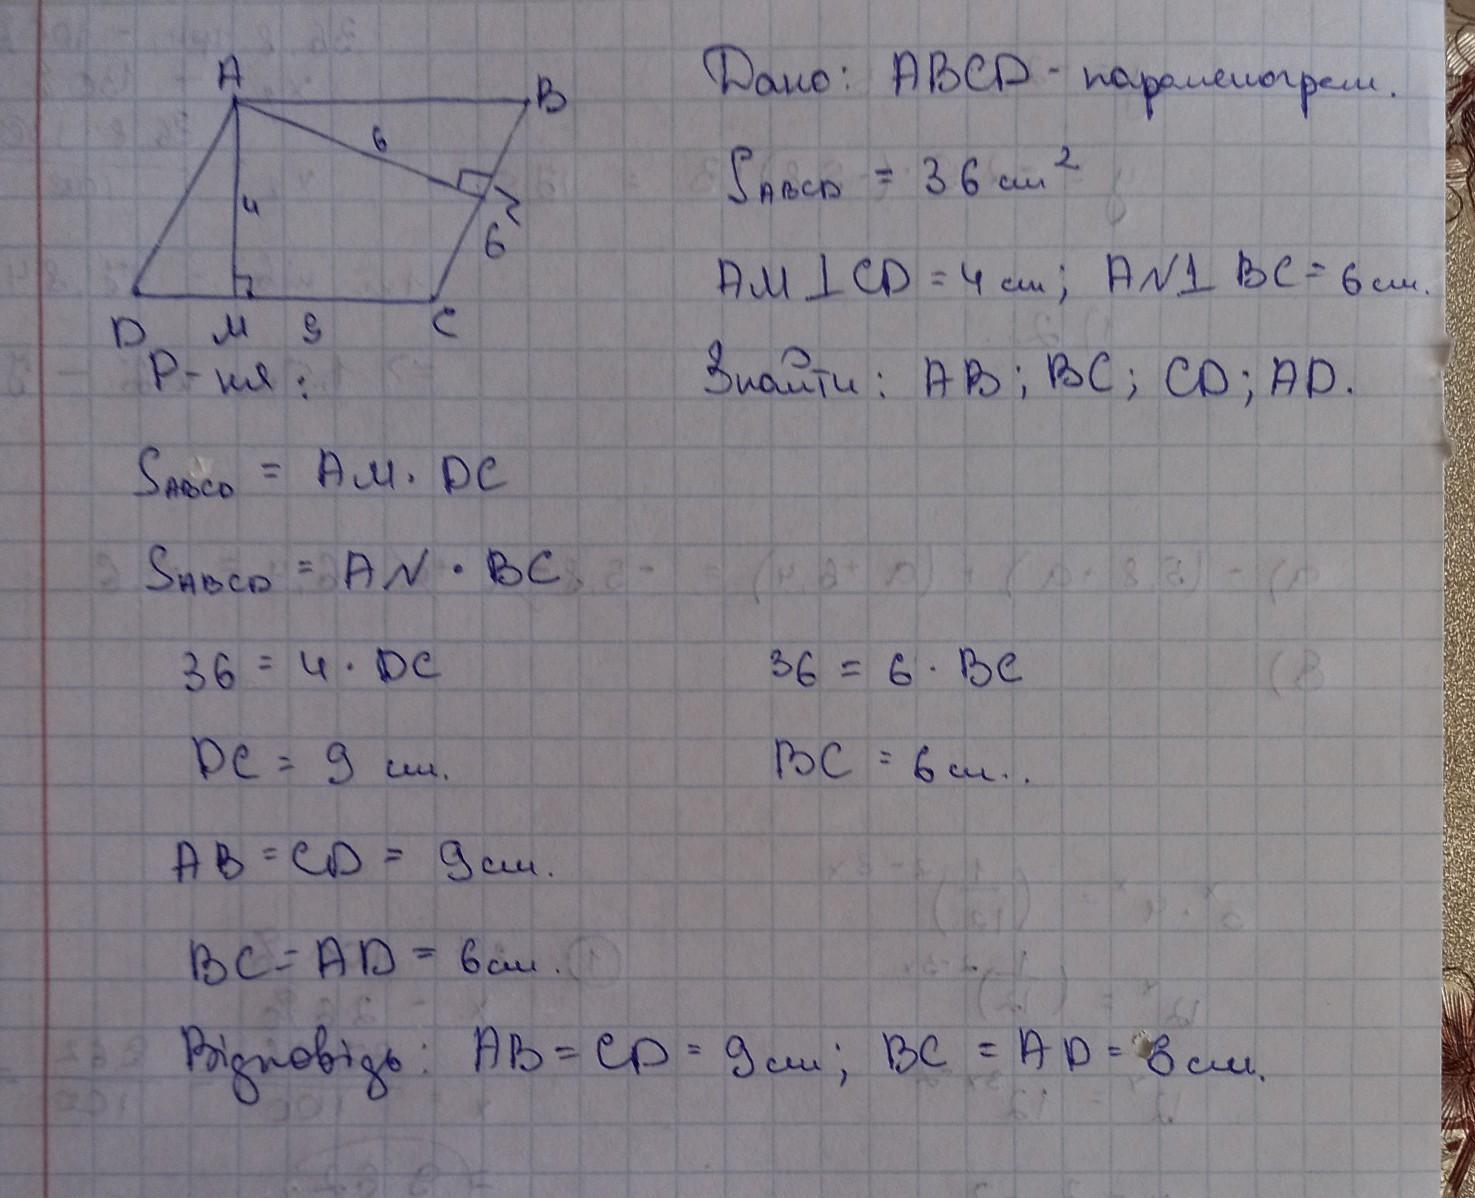 A
B
6
4
6
D M 9 C
N
Дано: ABCD - паралелограм.
S ABCD = 36 см²
AM ⊥ CD = 4 см; AN ⊥ BC = 6 см.
Знайти: AB; BC; CD; AD.
Р-ня:
S ABCD = AM · DC
S ABCD = AN · BC
36 = 4 · DC 36 = 6 · BC
DC = 9 см. BC = 6 см..
AB = CD = 9 см.
BC = AD = 6 см.
Відповідь: AB = CD = 9 см; BC = AD = 6 см.